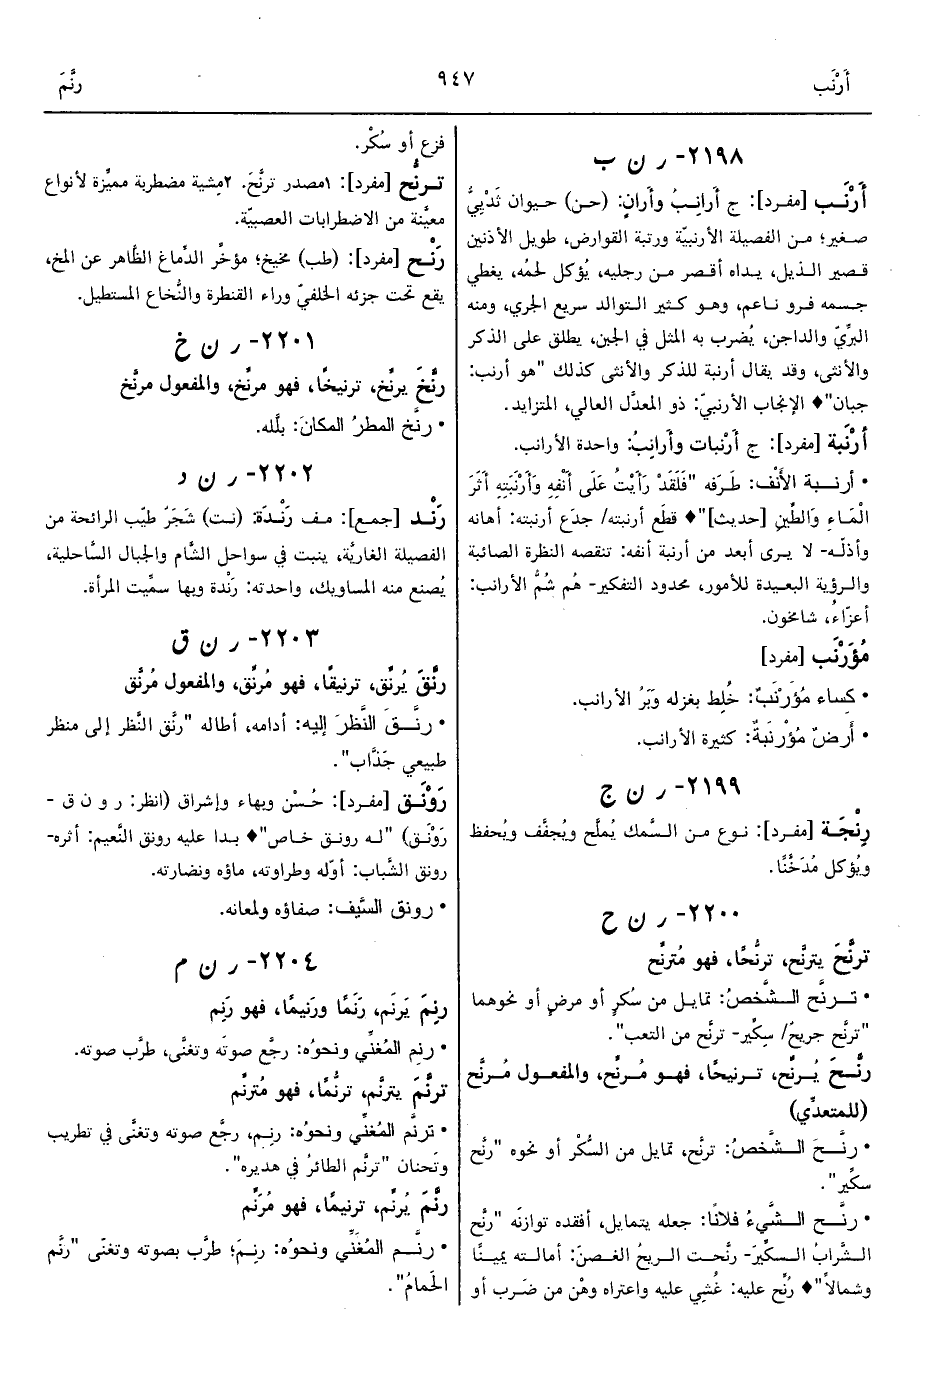 أَرْنَب
٩٤٧
رنَّمَ
٢١٩٨- ر ن ب
أَرْنَب [مفرد]: ج أرانِبُ وأرانٍ: (حن) حيوان ثَدْييٌّ
صغير؛ من الفصيلة الأرنبيّة ورتبة القوارض، طويل الأذنين
قصير الذيل، يداه أقصر من رجليه، يُؤكل لحمُه، يغطي
جسمه فرو ناعم، وهو كثير التوالد سريع الجري، ومنه
البرِّيّ والداجن، يُضرب به المثل في الجبن، يطلق على الذكر
والأنثى، وقد يقال أرنبة للذكر والأنثى كذلك "هو أرنب:
جبان"♦ الإنجاب الأرنبيّ: ذو المعدَّل العالي، المتزايد.
أرْنَبة [مفرد]: ج أرْنبات وأرانِبُ: واحدة الأرانب.
• أرنبة الأَنْف: طَرَفه "فَلَقَدْ رَأَيْتُ عَلَى أَنْفِهِ وَأَرْنَبَتِهِ أَثَرَ
الْمَاءِ وَالطِّينِ [حديث]"♦ قطَع أرنبته/ جدَع أرنبته: أهانه
وأذلّه- لا يرى أبعد من أرنبة أنفه: تنقصه النظرة الصائبة
والرؤية البعيدة للأمور، محدود التفكير- هُم شُمُّ الأرانب:
أعزّاءُ، شامخون.
مُؤَرْنَب [مفرد]
• كساء مُؤَرْنَبٌ: خُلِط بغزله وَبَرُ الأرانب.
• أرضٌ مُؤَرْنَبةٌ: كثيرة الأرانب.
٢١٩٩- ر ن ج
رِنْجَة [مفرد]: نوع من السَّمك يُملَّح ويُجفَّف ويُحفظ
ويُؤكل مُدَخَّنًا.
٢٢٠٠- ر ن ح
ترنَّحَ يترنَّح، ترنُّحًا، فهو مُترنِّح
• ترنَّح الشَّخصُ: تمايل من سُكرٍ أو مرضٍ أو نحوهما
"ترنَّح جريحٌ/ سِكِّير- ترنَّح من التعب".
رنَّحَ يُرنِّح، ترنيحًا، فهو مُرنِّح، والمفعول مُرنَّح
(للمتعدِّي)
• رنَّحَ الشَّخصُ: ترنَّح، تمايل من السُّكْر أو نحوه "رنَّح
سكِّير".
• رنَّح الشَّيءُ فلانًا: جعله يتمايل، أفقده توازنَه "رنَّح
الشَّرابُ السكِّيرَ- رنَّحت الريحُ الغصنَ: أمالته يمينًا
وشمالاً"♦ رُنِّح عليه: غُشِي عليه واعتراه وهْن من ضَرب أو
فزع أو سُكْر.
ترنُّح [مفرد]: ١مصدر ترنَّحَ. ٢مِشية مضطربة مميِّزة لأنواع
معيَّنة من الاضطرابات العصبيّة.
رَنْح [مفرد]: (طب) مخيخ؛ مؤخَّر الدِّماغ الظَّاهر عن المخ،
يقع تحت جزئه الخلفيّ وراء القنطرة والنُّخاع المستطيل.
٢٢٠١- ر ن خ
رنَّخَ يرنِّخ، ترنيخًا، فهو مرنِّخ، والمفعول مرنَّخ
• رنَّخ المطرُ المكانَ: بلَّله.
٢٢٠٢- ر ن د
رَنْد [جمع]: مف رَنْدَة: (نت) شَجَرٌ طيّب الرائحة من
الفصيلة الغاريَّة، ينبت في سواحل الشَّام والجبال السَّاحلية،
يُصنع منه المساويك، واحدته: رَنْدة وبها سمِّيت المرأة.
٢٢٠٣- ر ن ق
رنَّقَ يُرنِّق، ترنيقًا، فهو مُرنِّق، والمفعول مُرنَّق
• رنَّقَ النَّظرَ إليه: أدامه، أطاله "رنَّق النَّظر إلى منظر
طبيعي جَذَّاب".
رَوْنَق [مفرد]: حُسْن وبهاء وإشراق (انظر: ر و ن ق -
رَوْنَق) "له رونق خاص"♦ بدا عليه رونق النَّعيم: أثره-
رونق الشَّباب: أوّله وطراوته، ماؤه ونضارته.
• رونق السَّيف: صفاؤه ولمعانه.
٢٢٠٤- ر ن م
رنِمَ يَرنَم، رَنَمًا ورَنيمًا، فهو رَنِم
• رنِم المُغنِّي ونحوُه: رجَّع صوتَه وتغنَّى، طرَّب صوته.
ترنَّمَ يترنَّم، ترنُّمًا، فهو مُترنِّم
• ترنَّم المُغنِّي ونحوُه: رنِم، رجَّع صوته وتغنَّى في تطريب
وتَحنان "ترنَّم الطائرُ في هديره".
رنَّمَ يُرنِّم، ترنيمًا، فهو مُرَنِّم
• رنَّم المُغَنِّي ونحوُه: رنِمَ؛ طرَّب بصوته وتغنَّى "رنَّم
الحَمامُ".